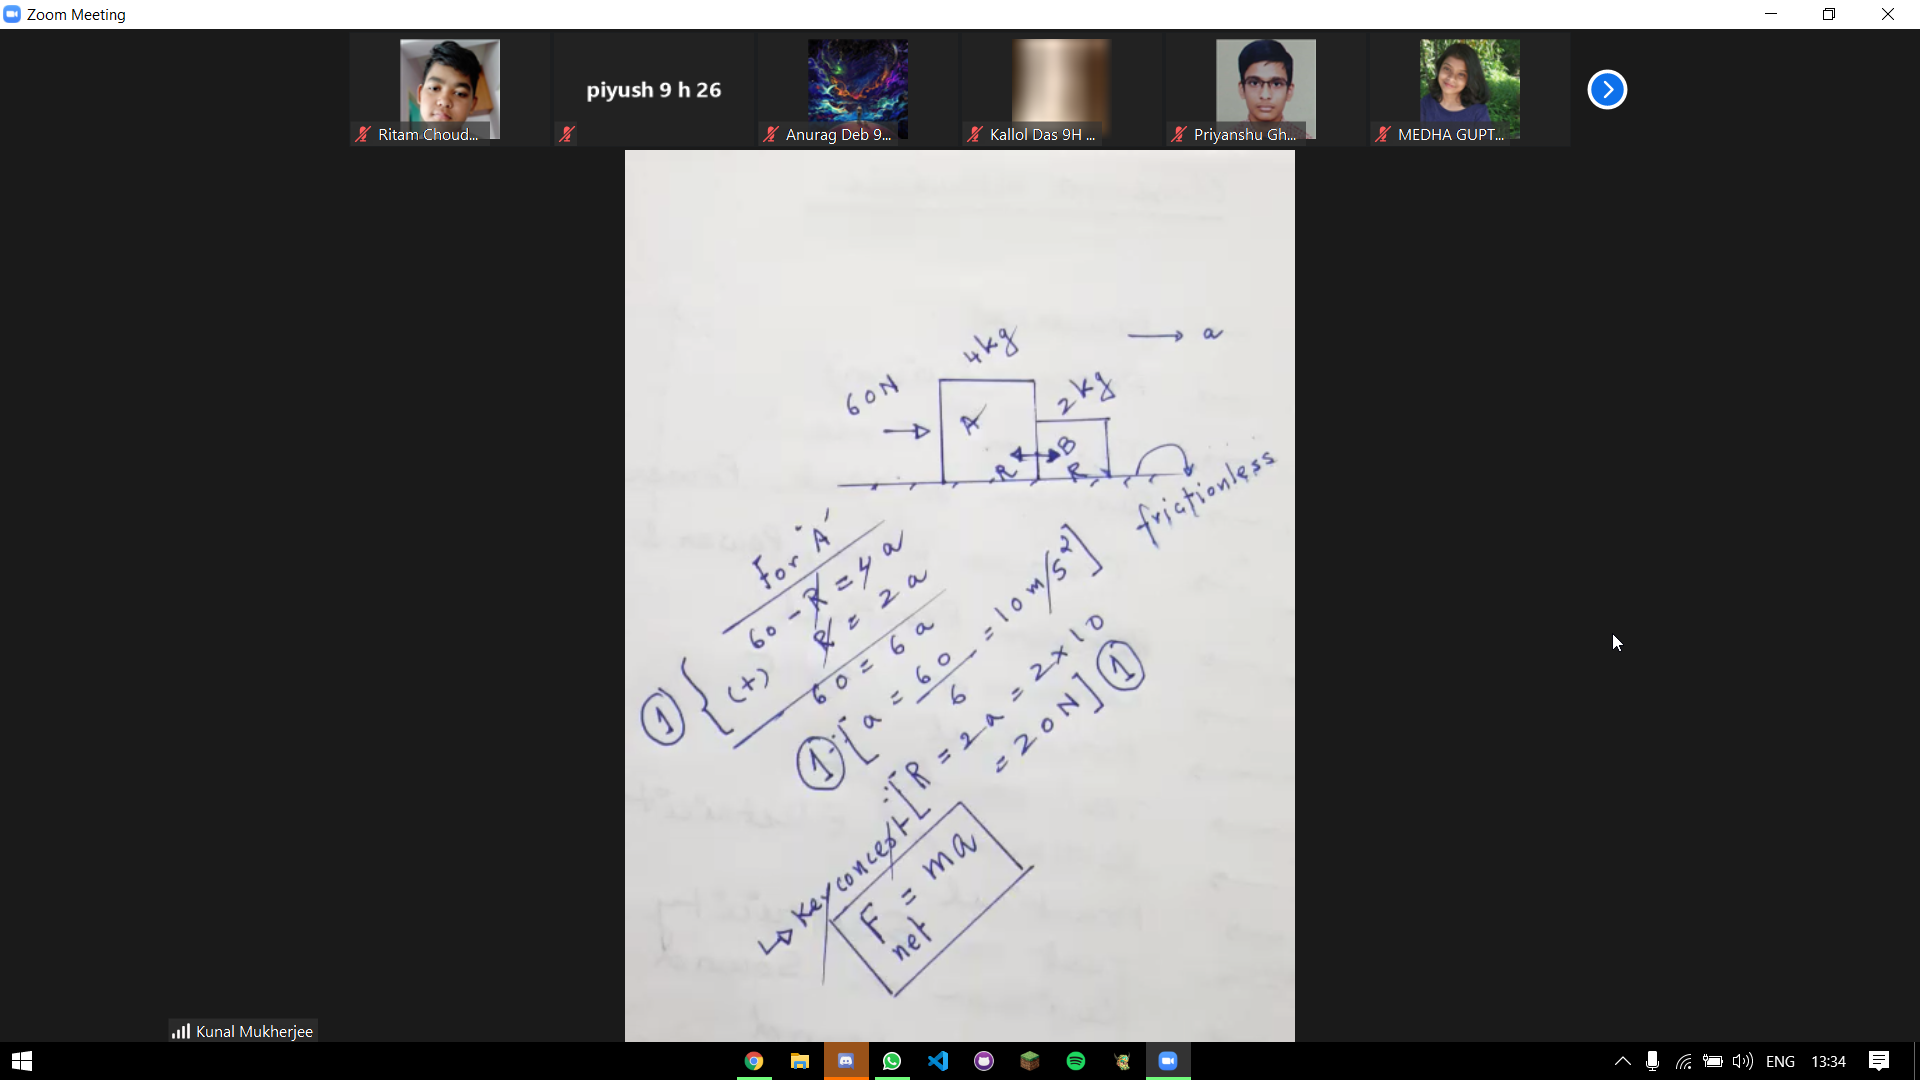 Zoom Meeting
Ritam Choud...
piyush 9 h 26
Anurag Deb 9...
Kallol Das 9H ...
Priyanshu Gh...
MEDHA GUPT...
4kg
→ a
60N
2kg
A
B
R
R
frictionless
For 'A'
60 - R = 4a
(+) R = 2a
①
60 = 6a
① ∴ [a = 60/6 = 10 m/s²]
∴ [R = 2a = 2 × 10
= 20N] ①
↳ Key concept
F net = ma
Kunal Mukherjee
ENG
13:34